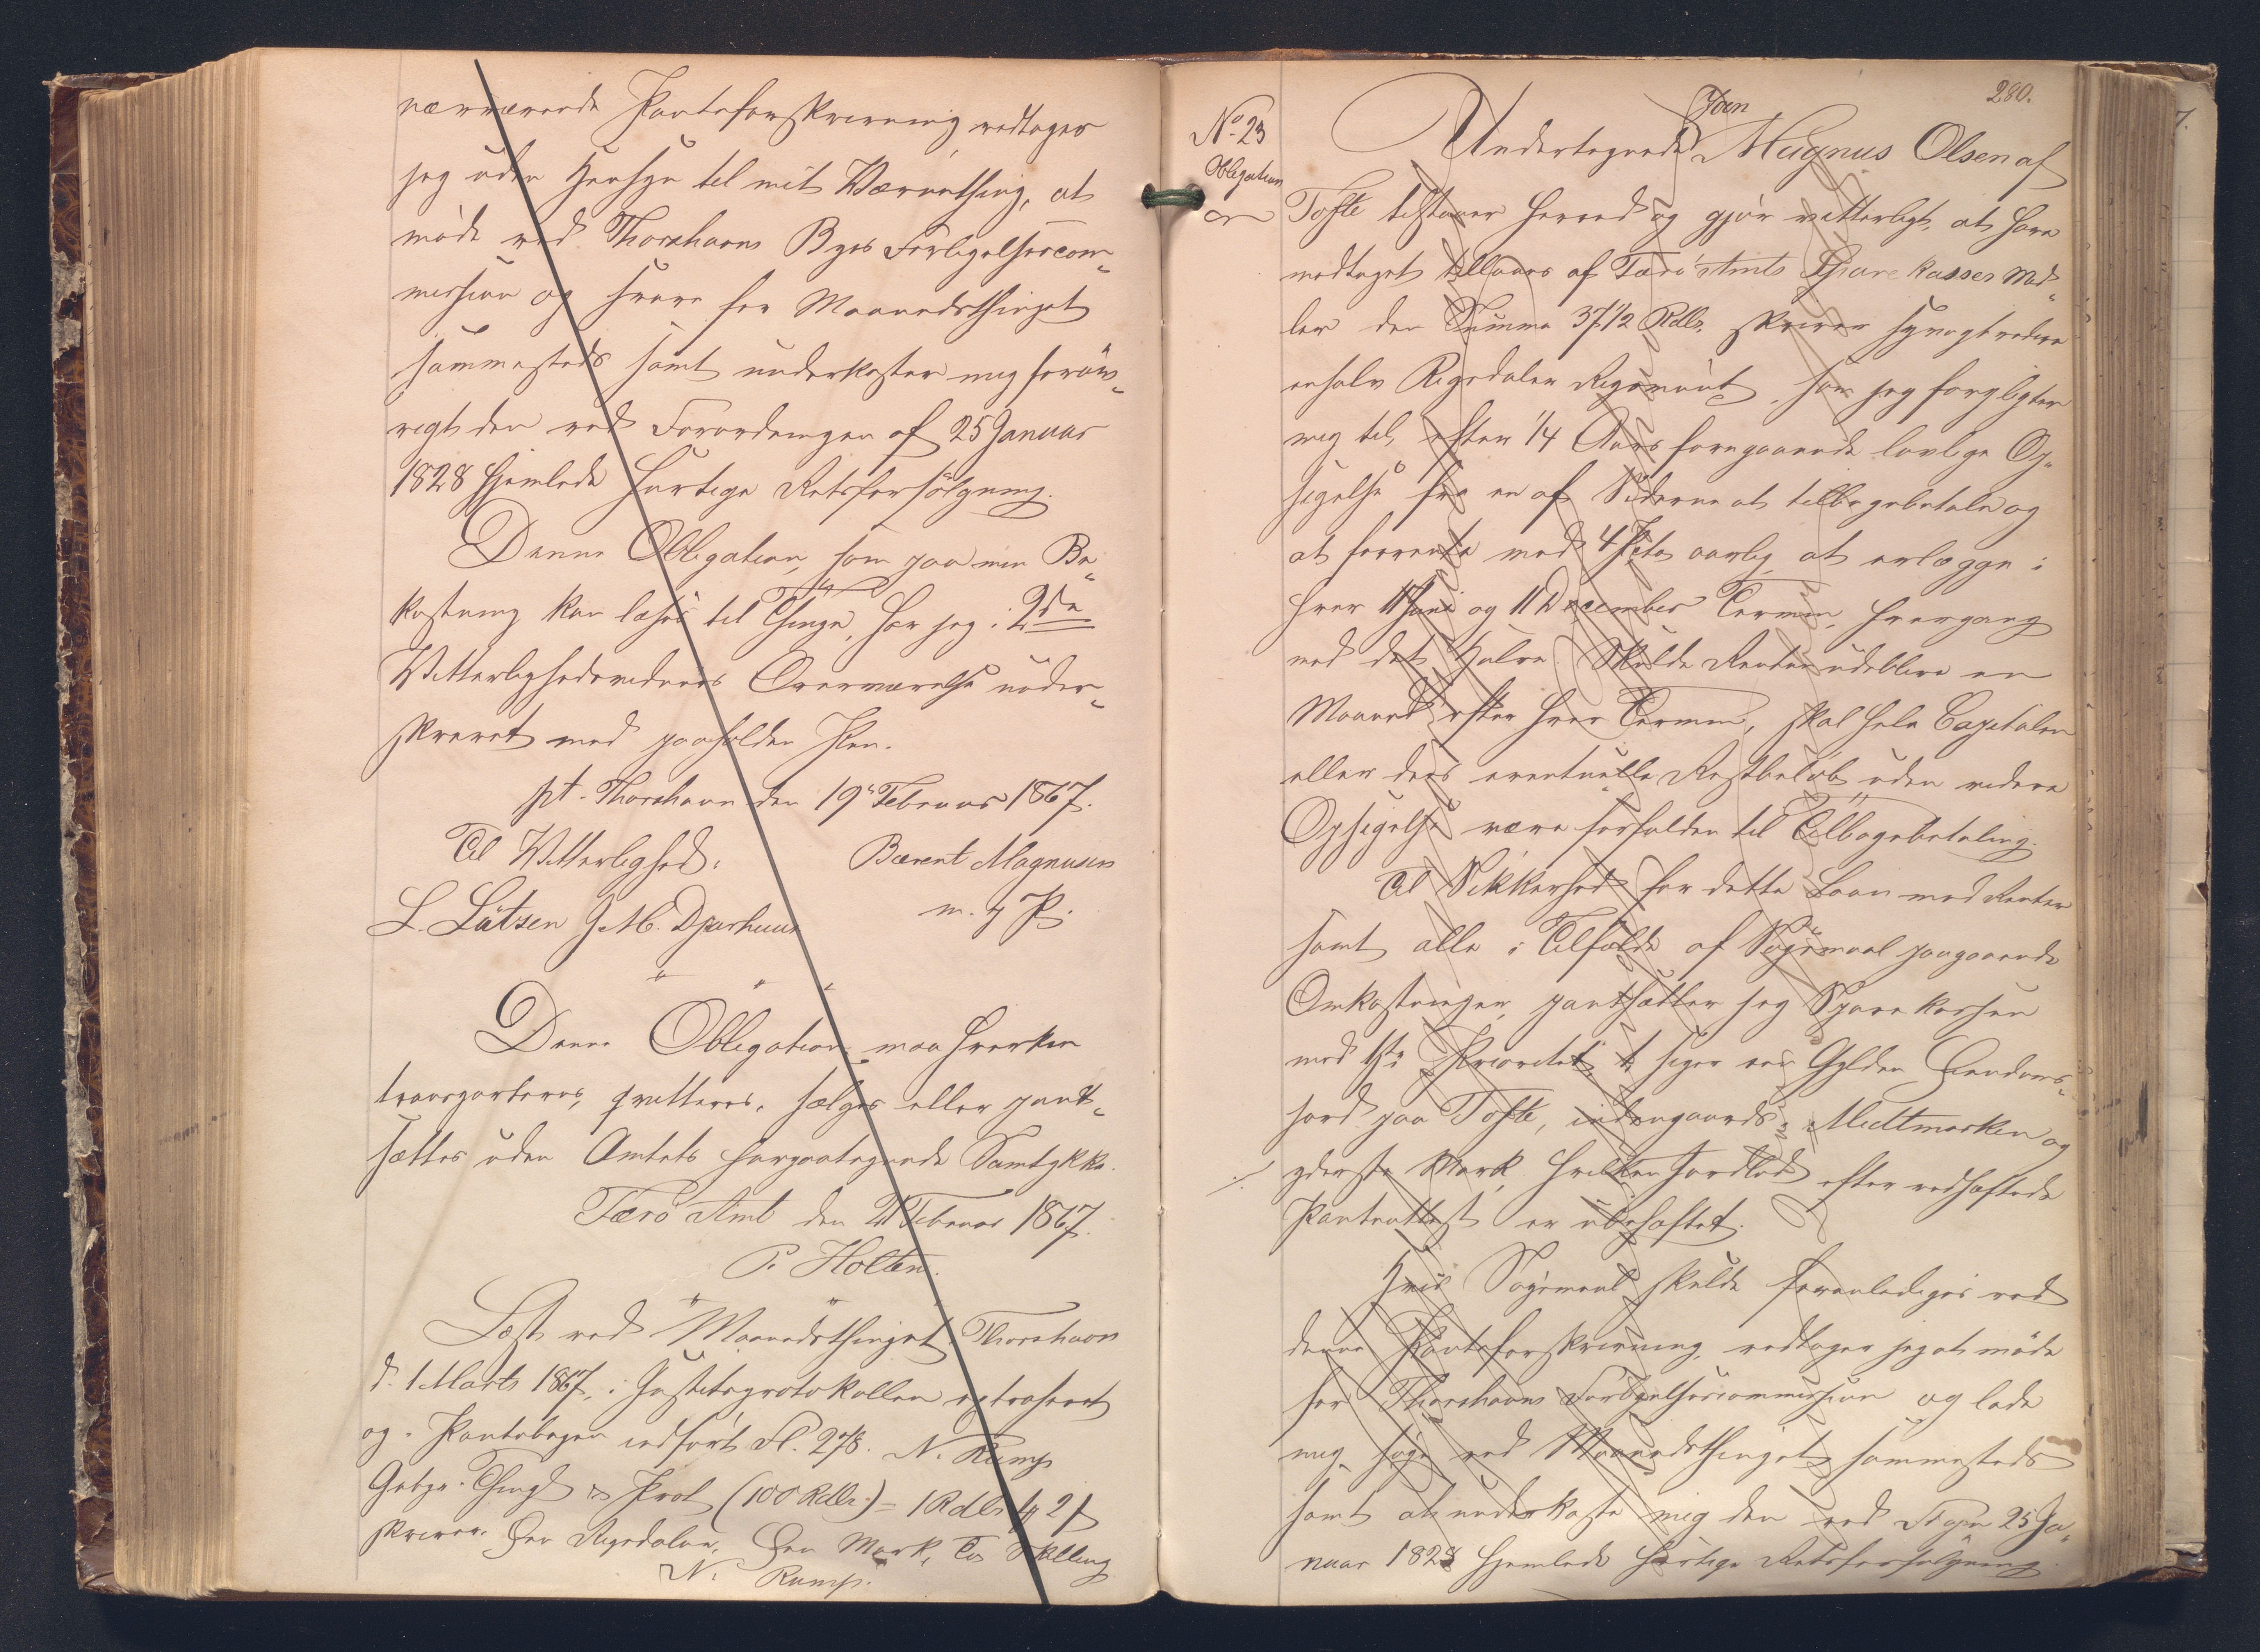 nærværende Panteforskrivning vedtager
jeg uden Hensyn til mit Værnething, at
möde ved Thorshavns Byes Forligelsescom-
mission og svare for Maanedsthinget
sammesteds samt underkaster mig foröv-
rigt den ved Forordningen af 25 Januar
1828 hjemlede hurtige Retsforfölgning.
Denne Obligation, som paa min Be-
kostning kan læses til Thinge, har jeg i 2de
Vitterlighedsvidners Overværelse under-
skrevet med paaholden Pen.
pt. Thorshavn den 19de Februar 1867.
Til Vitterlighed: Barent Magnusen
L. Lützen J. M. Djurhuus m. f. P.
Denne Obligation maa hverken
transporteres, qvitteres, sælges eller pant-
sættes uden Amtets herpaategnede Samtykke.
Færö Amt den 21 Februar 1867.
P. Holten.
Læst ved Maanedsthinget i Thorshavn
d. 1 Marts 1867, i Justitsprotokollen extraheret
og i Pantebogen indfört Fol. 278. N. Rump
Gebyr Thingl & Prot (100 Rdlr.) = 1 Rdlr 1 # 2 s
skriver Een Rigsdaler, Een Mark, To Skilling
N. Rump.
280.
No. 23
Obligation
Joen
Undertegnede Magnus Olsen af
Tofte tilstaaer herved og gjör vitterligt, at have
modtaget tillaans af Færö Amts Sparekasses Mid-
ler den Summa 37 1/2 Rdlr, skriver syvogtredive
enhalv Rigsdaler Rigsmönt, som jeg forpligter
mig til, efter 1/4 Aars foregaaende lovlige Op-
sigelse fra en af Siderne at tilbagebetale og
at forrente med 4 Pcto aarlig at erlægge i
hver 11 Juni og 11 December Termin, hvergang
med det Halve. Skulde Renten udeblive en
Maaned efter hver Termin, skal hele Capitalen
eller dens eventuelle Restbelöb uden videre
Opsigelse være forfalden til Tilbagebetaling.
Til Sikkerhed for dette Laan med Renter
samt alle i Tilfælde af Sögsmaal paagaaende
Omkostninger, pantsætter jeg Sparekassen
med 1ste Prioritet, 1 siger een Gylden Eiendoms-
jord paa Tofte, indengaards i Midtmarken og
yderste Mark, hvilken Jordlod efter vedhæftede
Panteattest er ubehæftet.
Hvis Sögsmaal skulde foranlediges ved
denne Panteforskrivning, vedtager jeg at möde
for Thorshavns Forligelsescommission og lade
mig söge ved Maanedsthinget sammesteds
samt at underkaste mig den ved Frdgn 25 Ja-
nuar 1828 hjemlede hurtige Retsforfölgning